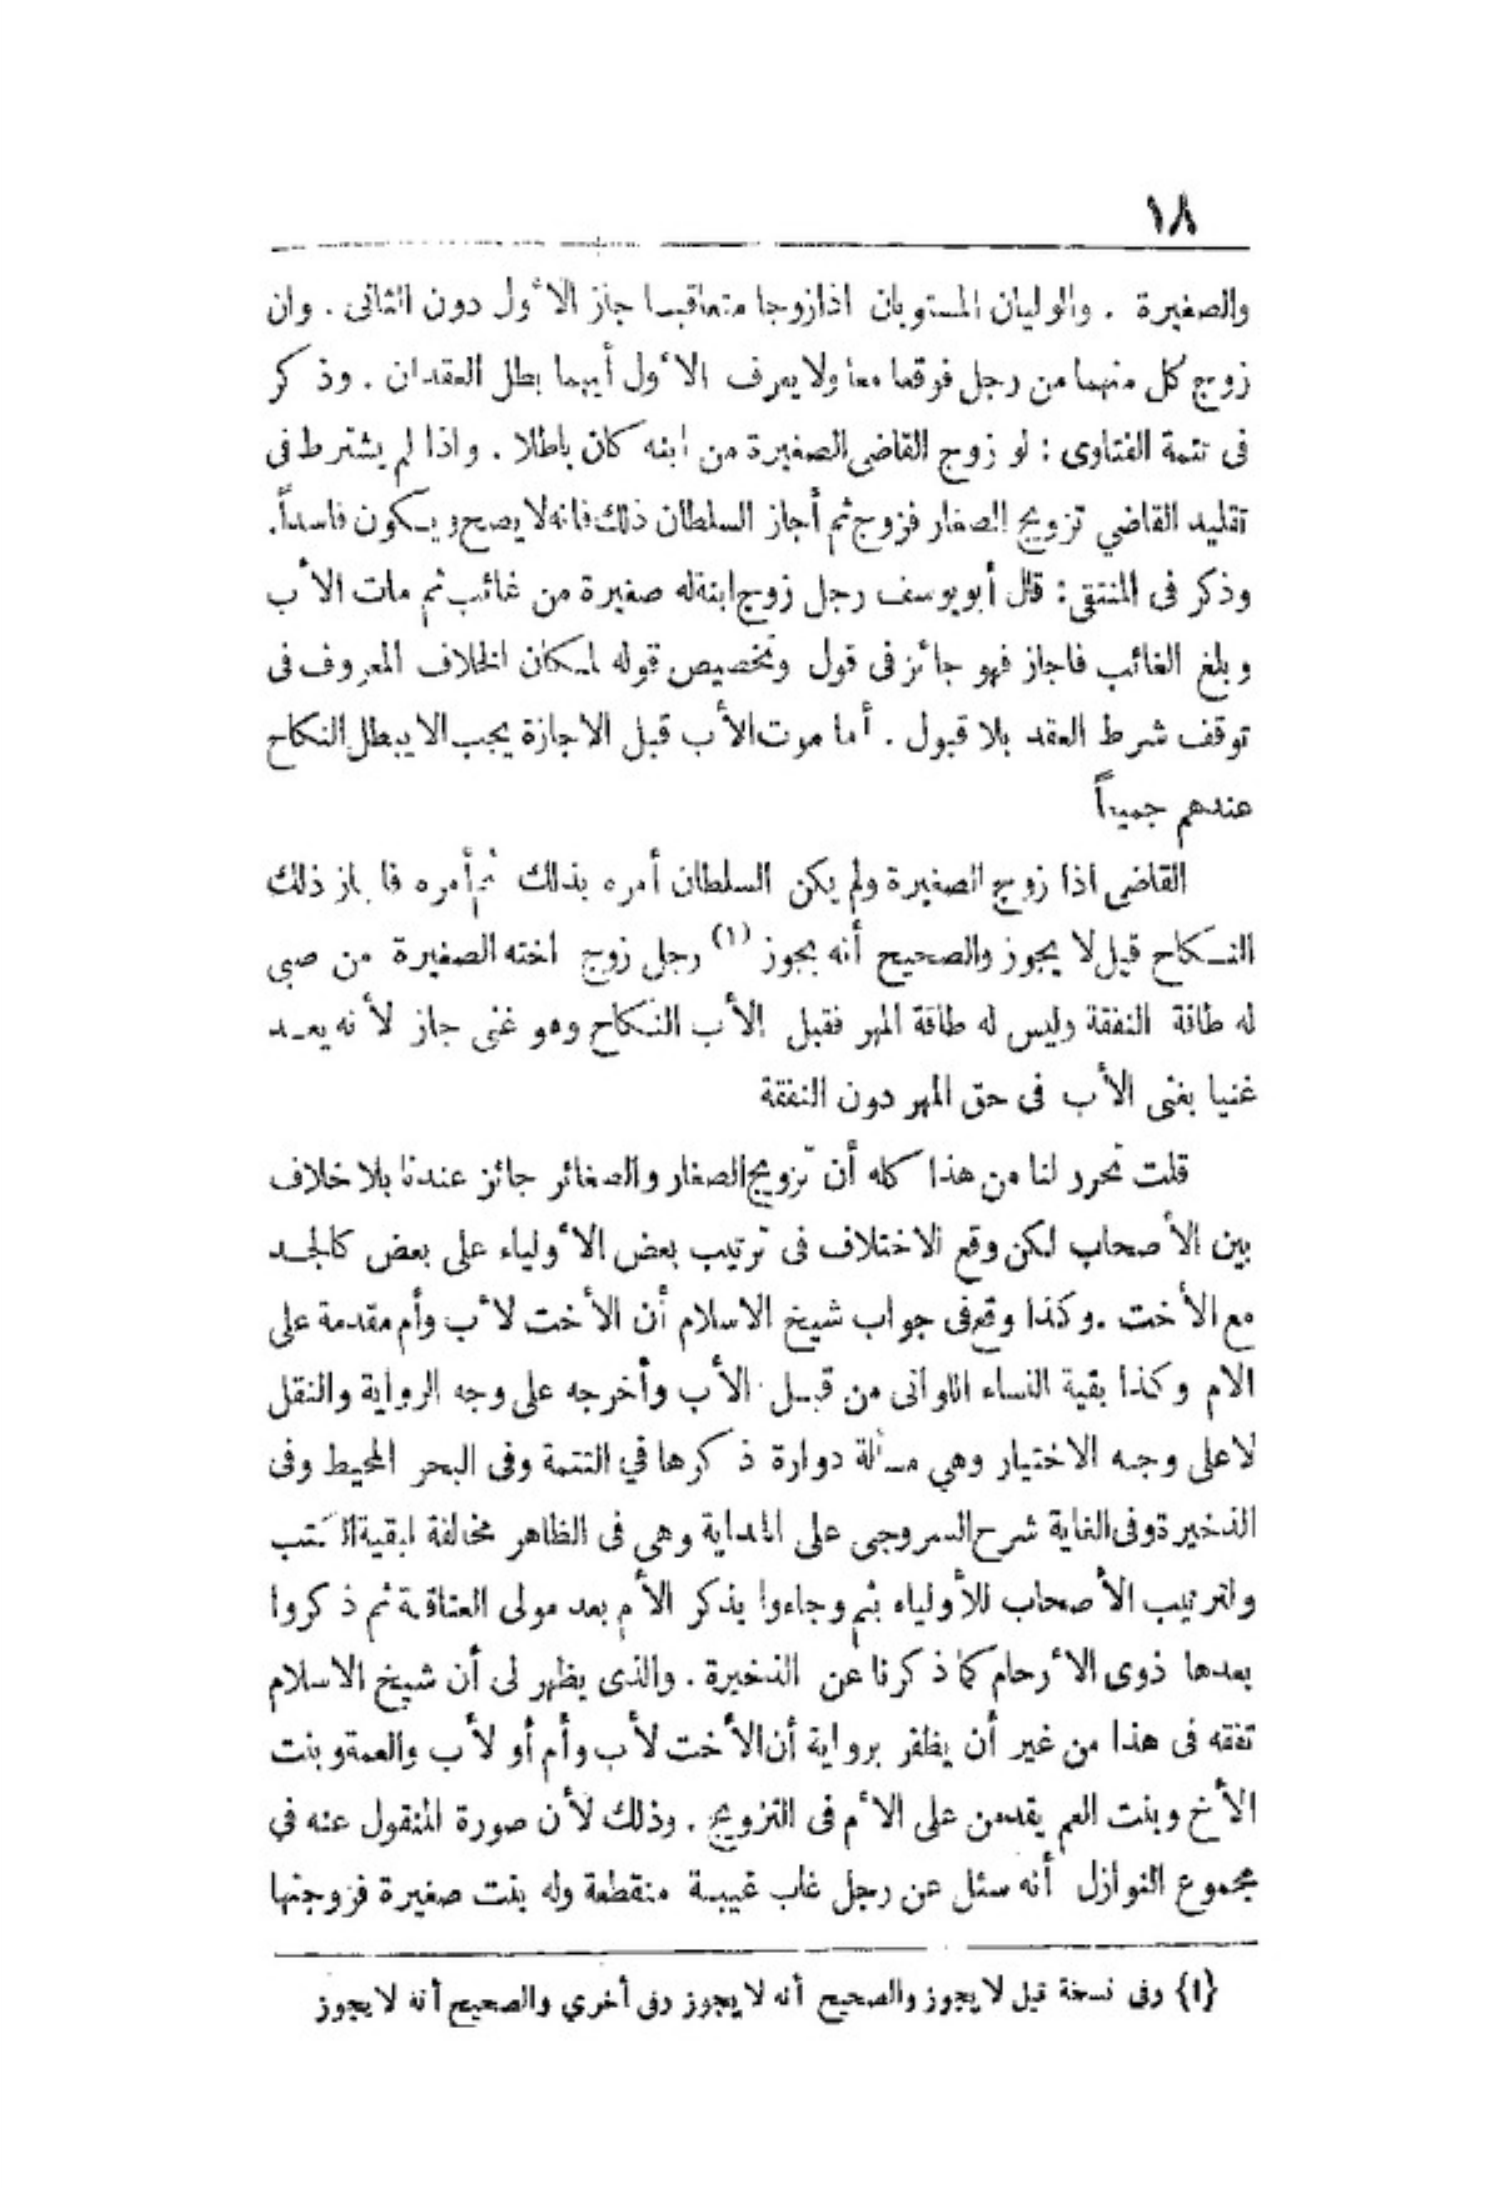 ١٨
والصغيرة . والوليان المستويان اذا زوجا متعاقبا جاز الأول دون الثانى . وان
زوج كل منهما من رجل فوقعا معا ولا يعرف الأول أيهما بطل العقدان . وذكر
فى تتمة الفتاوى : لو زوج القاضى الصغيرة من ابنه كان باطلا . واذا لم يشترط فى
تقليد القاضي تزويج الصغار فزوج ثم أجاز السلطان ذلك فانه لا يصح ويكون فاسداً .
وذكر فى المنتقى : قال أبو يوسف رجل زوج ابنة له صغيرة من غائب ثم مات الأب
وبلغ الغائب فاجاز فهو جائز فى قول وتخصيص قوله لمكان الخلاف المعروف فى
توقف شرط العقد بلا قبول . أما موت الأب قبل الاجازة يجب الا يبطل النكاح
عندهم جميعاً
القاضى اذا زوج الصغيرة ولم يكن السلطان أمره بذلك ثم أمره فاجاز ذلك
النكاح قيل لا يجوز والصحيح أنه يجوز (١) رجل زوج اخته الصغيرة من صبى
له طاقة النفقة وليس له طاقة المهر فقبل الأب النكاح وهو غنى جاز لأنه يعد
غنيا بغنى الأب فى حق المهر دون النفقة
قلت تحرر لنا من هذا كله أن تزويج الصغار والصغائر جائز عندنا بلا خلاف
بين الأصحاب لكن وقع الاختلاف فى ترتيب بعض الأولياء على بعض كالجد
مع الأخت . وكذا وقع فى جواب شيخ الاسلام أن الأخت لأب وأم مقدمة على
الام وكذا بقية النساء اللواتى من قبل الأب وأخرجه على وجه الرواية والنقل
لا على وجه الاختيار وهي مسألة دوارة ذكرها في التتمة وفى البحر المحيط وفى
الذخيرة وفى الغاية شرح السروجى على الهداية وهى فى الظاهر مخالفة لبقية الكتب
ولترتيب الأصحاب للأولياء ثم وجاءوا بذكر الأم بعد مولى العتاقة ثم ذكروا
بعدها ذوى الأرحام كما ذكرنا عن الذخيرة . والذى يظهر لى أن شيخ الاسلام
تفقه فى هذا من غير أن يظفر برواية أن الأخت لأب وأم أو لأب والعمة وبنت
الأخ وبنت العم يقدمن على الأم فى التزويج . وذلك لأن صورة المنقول عنه في
مجموع النوازل أنه سئل عن رجل غاب غيبة منقطعة وله بنت صغيرة فزوجتها
{١} وفى نسخة قيل لا يجوز والصحيح أنه لا يجوز وفى أخري والصحيح أنه لا يجوز